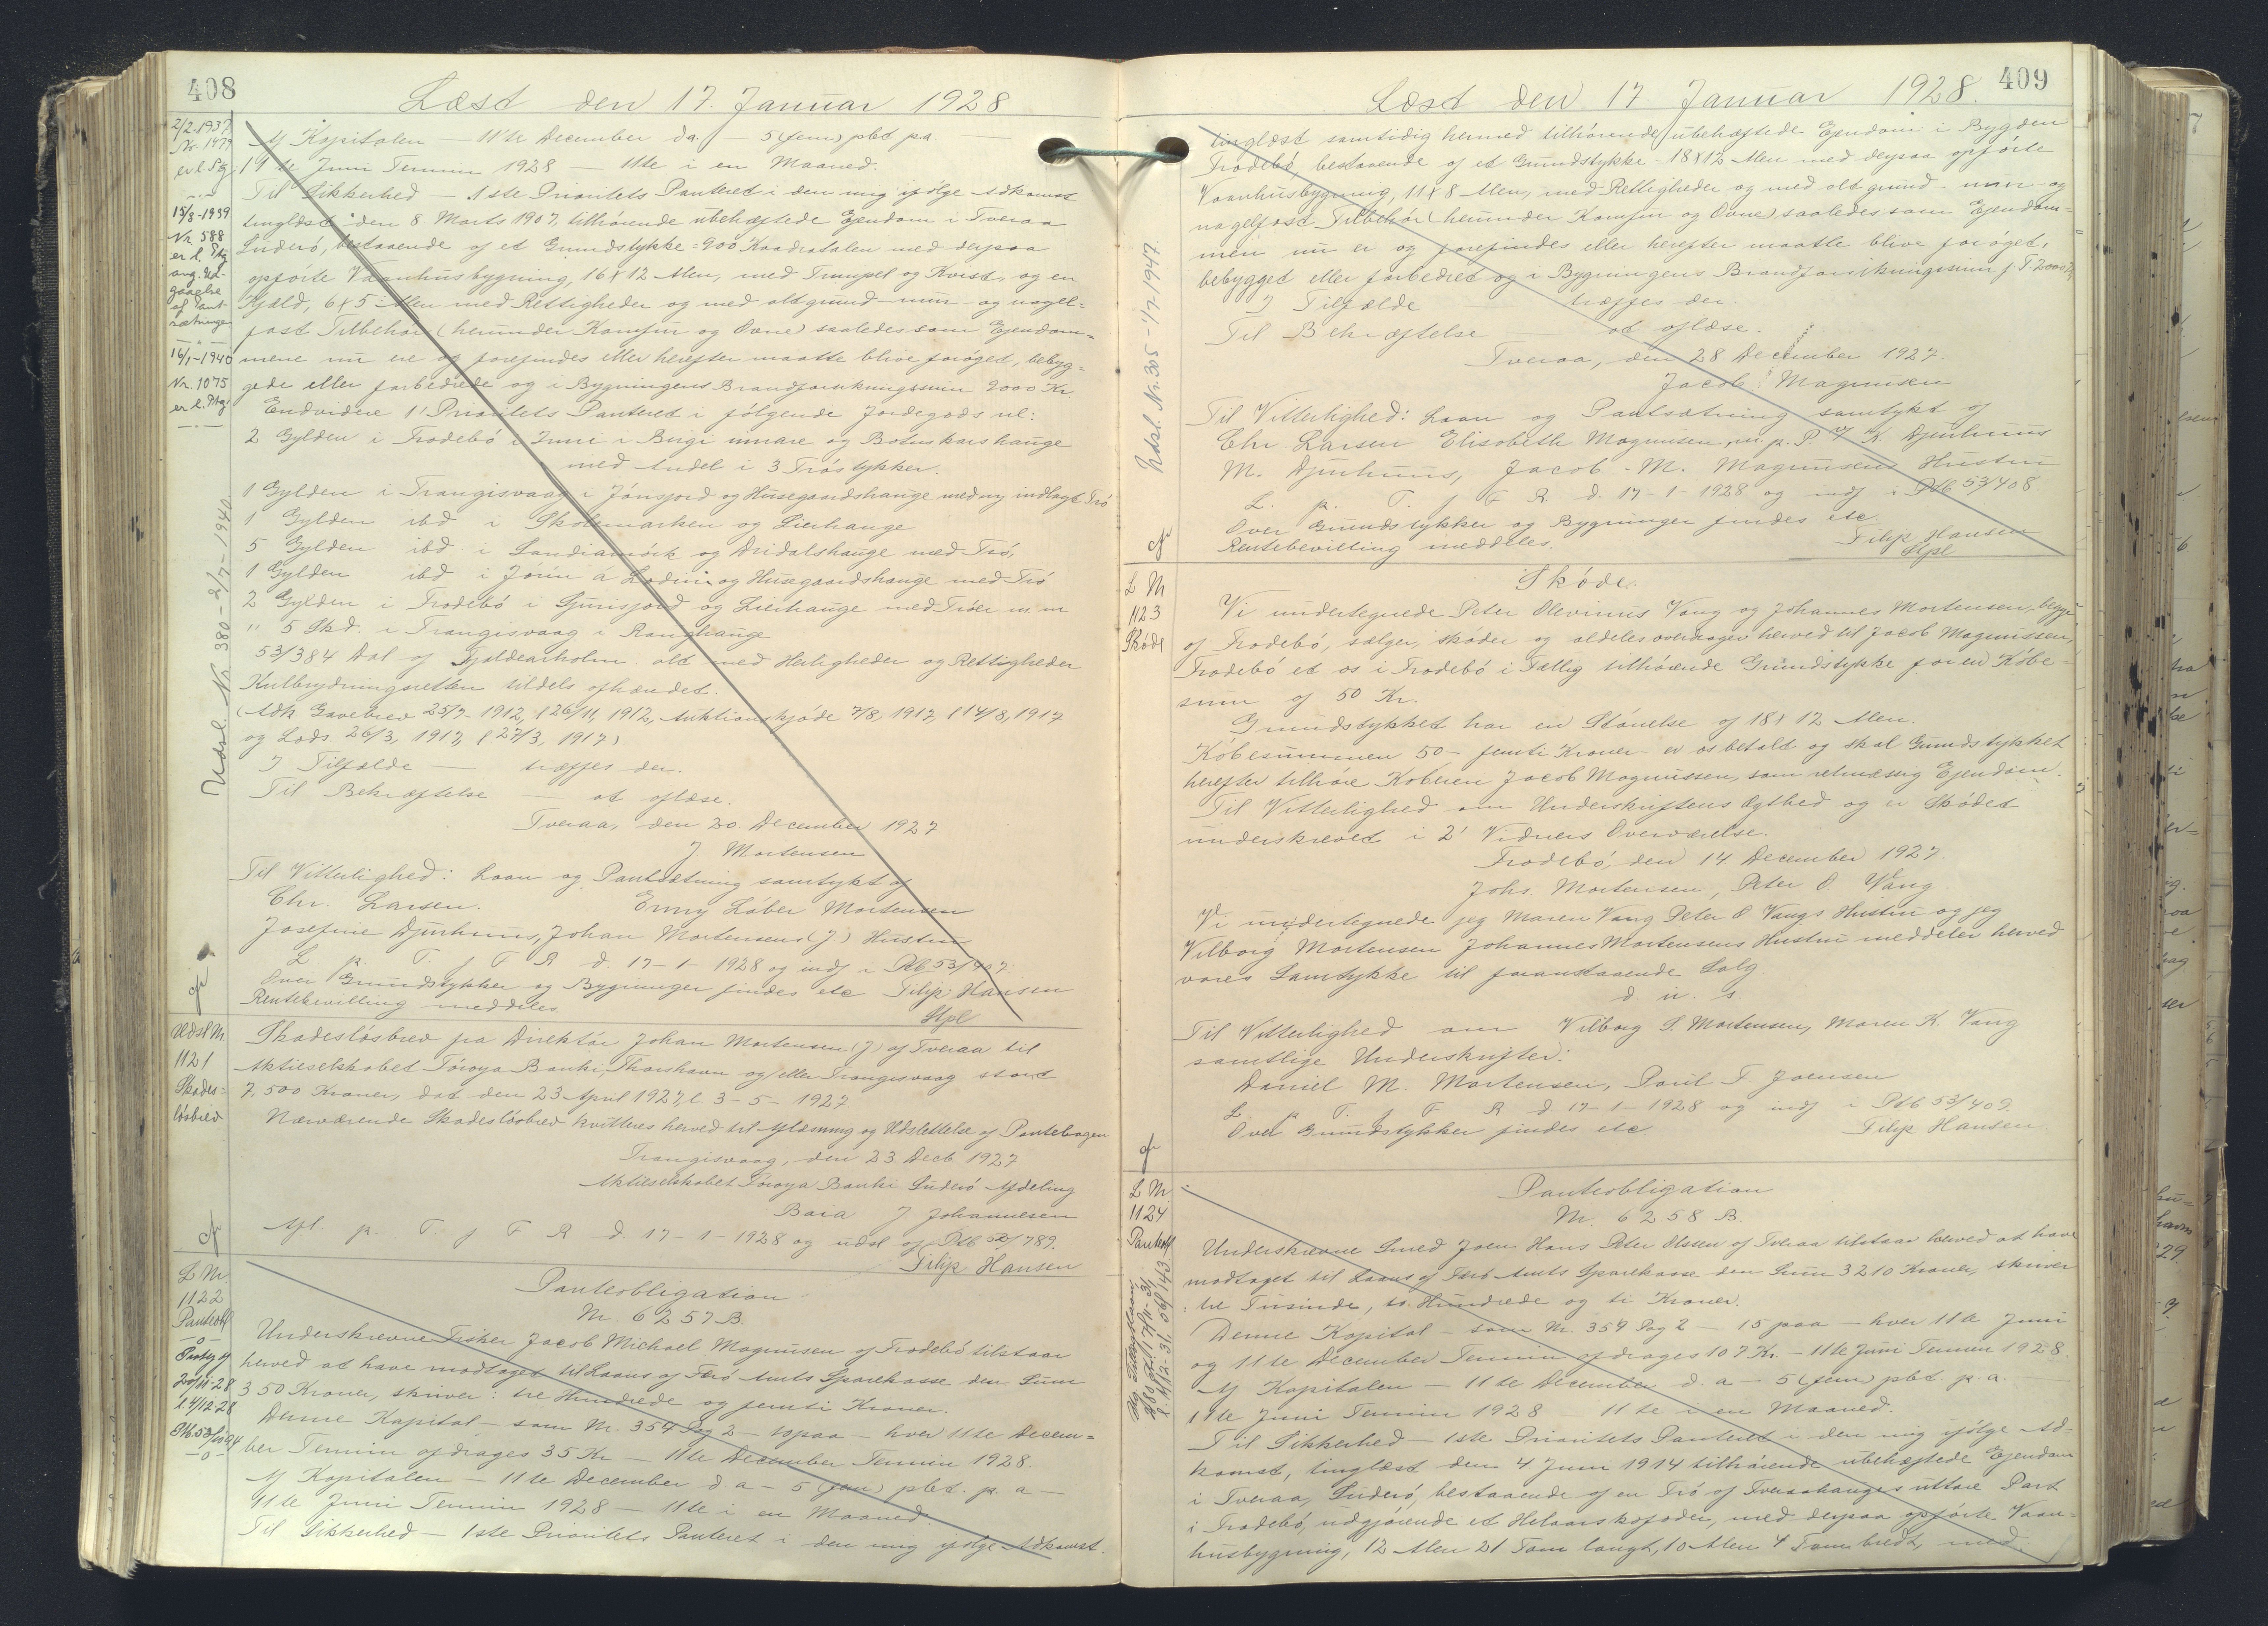 408
Læst den 17. Januar 1928
2/2-1937.
Nr. 1477
er l. Ptg
15/8-1939
Nr. 588
er l. Ptg
ang. ved-
gaaelse
af Pant-
sætningen
16/1-1940
Nr. 1075
er l. Ptg.
Udsl. Nr 380 - 2/7-1940
Af Kapitalen - 11te December d a. - 5 (fem) pbt pa
11te Juni Termin 1928 - 11te i en Maaned.
Til Sikkerhed - 1ste Prioritets Panteret i den mig ifølge Adkomst
tinglæst den 8 Marts 1907, tilhørende ubehæftede Ejendom i Tveraa
Suderø, bestaaende af et Grundstykke = 900 Kvadratalen med derpaa
opførte Vaanhusbygning, 16 X 12 Alen, med Trumpel og Kvist, og en
Hjæld, 6 X 5 Alen med Rettigheder og med alt grund- mur- og nagel-
fast Tilbehør (herunder Komfur og Ovne) saaledes som Ejendom-
mene nu ere og forefindes eller herefter maatte blive forøget, bebyg-
gede eller forbedrede og i Bygningens Brandforsikringssum 9000 Kr.
Endvidere 1' Prioritets Panteret i følgende Jordegods nl:
2 Gylden i Frodebø i Juni i Birgi innare og Botnskarshauge
med Andel i 3 Trøstykker.
1 Gylden i Trangisvaag i Jónsjord og Husegaardshauge med ny indlagt Trø
1 Gylden ibd i Skolemarken og Lierhauge
5 Gylden ibd i Sandiamörk og Dridalshauge med Trø,
1 Gylden ibd i Jørun á Lodini og Husegaardshauge med Trø
2 Gylden i Frodebø i Gurisjord og Lierhauge med Trøer m m
" 5 Skd. i Trangisvaag i Ranghauge
53/384 Del af Tjaldearholm alt med Herligheder og Rettigheder
Kulbrydningsretten tildels afhændet.
(Adk Gavebrev 25/7-1912, l 26/11, 1912, Auktionskjøde 7/8, 1917, l 14/8, 1917
og Lods. 26/3, 1917, l 27/3, 1917)
I Tilfælde - træffes der.
Til Bekræftelse - at aflæse.
Tveraa, den 20. December 1927.
J Mortensen
Til Vitterlighed: Laan og Pantsætning samtykt af
Chr. Larsen. Enny Løber Mortensen
Josefine Djurhuus, Johan Mortensens (J) Hustru
L p. T. f F R d. 17-1-1928 og indf i Ptb 53/407.
Over Grundstykker og Bygninger findes etc Filip Hansen
Rentebevilling meddeles Kpl
Udsl Nr
1121
Skades-
løsbrev
Skadesløsbrev fra Direktør Johan Mortensen (J) af Tveraa til
Aktieselskabet Føroya Banki, Thorshavn og/eller Trangisvaag stort
7,500 Kroner, dat den 23 April 1927, l. 3-5-1927
Nærværende Skadesløsbrev kvitteres herved til Aflæsning og Udslettelse af Pantebogen
Trangisvaag, den 23 Decb. 1927
Aktieselskabet Føroya Banki Suderø Afdeling
Baia J Johannesen
Afl. p. T. f F R d. 17-1-1928 og udsl af Ptb 52/789.
Filip Hansen
L Nr.
1122
Panteobl
Pantobligation
Nr. 6257 B.
Underskrevne Fisker Jacob Michael Magnusen af Frodebø tilstaar
herved at have modtaget til Laans af Færø Amts Sparekasse den Sum
350 Kroner, skriver: tre Hundrede og femti Kroner.
Denne Kapital - som Nr. 354 Pag 2 - 10 paa - hver 11te Decem-
ber Termin afdrages 35 Kr - 11te December Termin 1928.
Af Kapitalen - 11te December d a - 5 (fem) pbt. p. a -
11te Juni Termin 1928 - 11te i en Maaned.
Til Sikkerhed - 1ste Prioritets Panteret i den mig ifølge Adkomst.
409
Læst den 17 Januar 1928.
Udsl. Nr. 305 - 1/7-1947.
tinglæst samtidig hermed tilhørende ubehæftede Ejendom i Bygden
Frodebø, bestaaende af et Grundstykke - 18 X 12 Alen med derpaa opførte
Vaanhusbygning, 11 X 8 Alen, med Rettigheder og med alt grund- mur- og
nagelfast Tilbehør (herunder Komfur og Ovne) saaledes som Ejendom-
men nu er og forefindes eller herefter maatte blive forøget,
bebygget eller forbedret og i Bygningens Brandforsikringssum
I Tilfælde træffes der.
Til Bekræftelse at aflæse.
Tveraa, den 28 December 1927.
Jacob Magnusen
Til Vitterlighed: Laan og Pantsætning samtykt af
Chr Larsen Elisabeth Magnusen, m. p. P. J K. Djurhuus
M. Djurhuus, Jacob M. Magnusens Hustru
L. p. T. f F R d. 17-1-1928 og indf i Ptb 53/408.
Over Grundstykker og Bygninger findes etc.
Rentebevilling meddeles. Filip Hansen
Kpl
L Nr
1123
Skøde
Skøde.
Vi undertegnede Peter Olevinus Vang og Johannes Mortensen, begge
af Frodebø, sælger, skøder og aldeles overdrager herved til Jacob Magnussen,
Frodebø et os i Frodebø i Fællig tilhørende Grundstykke for en Købe-
sum af 50 Kr.
Grundstykket har en Størrelse af 18 X 12 Alen.
Købesummen 50 - femti Kroner er os betalt og skal Grundstykket
herefter tilhøre Køberen Jacob Magnussen, som retmæssig Ejendom.
Til Vitterlighed om Underskriftens Ægthed og er Skødet
underskrevet i 2' Vidners Overværelse.
Frodebø, den 14. December 1927.
Johs. Mortensen, Peter O. Vang.
Vi undertegnede jeg Maren Vang Peter O Vangs Hustru og jeg
Vilborg Mortensen Johannes Mortensens Hustru meddeler herved
vores Samtykke til foranstaaende Salg
d u. s.
Til Vitterlighed om Vilborg S. Mortensen, Maren K. Vang
samtlige Underskrifter:
Daniel M. Mortensen, Poul F Joensen
L p T. f F R d 17-1-1928 og indf i Ptb 53/409.
Over Grundstykker findes etc Filip Hansen
L Nr
1124
Panteobl
Panteobligation
Nr. 6258 B.
Underskrevne Smed Joen Hans Peter Olsen af Tveraa tilstaar herved at have
modtaget til Laans af Færø Amts Sparekasse den Sum 3210 Kroner, skriver
: tre Tusinde, to Hundrede og ti Kroner.
Denne Kapital - som Nr. 354 Pag 2 - 15 paa - hver 11te Juni
og 11te December Termin afdrages 107 Kr. - 11te Juni Termin 1928.
Af Kapitalen - 11te December d. a - 5 (fem) pbt. p. a.
11te Juni Termin 1928 - 11te i en Maaned.
Til Sikkerhed - 1ste Prioritets Panteret i den mig ifølge Ad-
komst, tinglæst den 4 Juni 1914 tilhørende ubehæftede Ejendom
i Tveraa, Suderø, bestaaende af en Trø af Tveraahauges uttare Part
i Frodebø, udgjørende et Helaarskofoder, med derpaa opførte Vaan-
husbygning, 12 Alen 21 Tom langt, 10 Alen 4 Tom bredt, med.